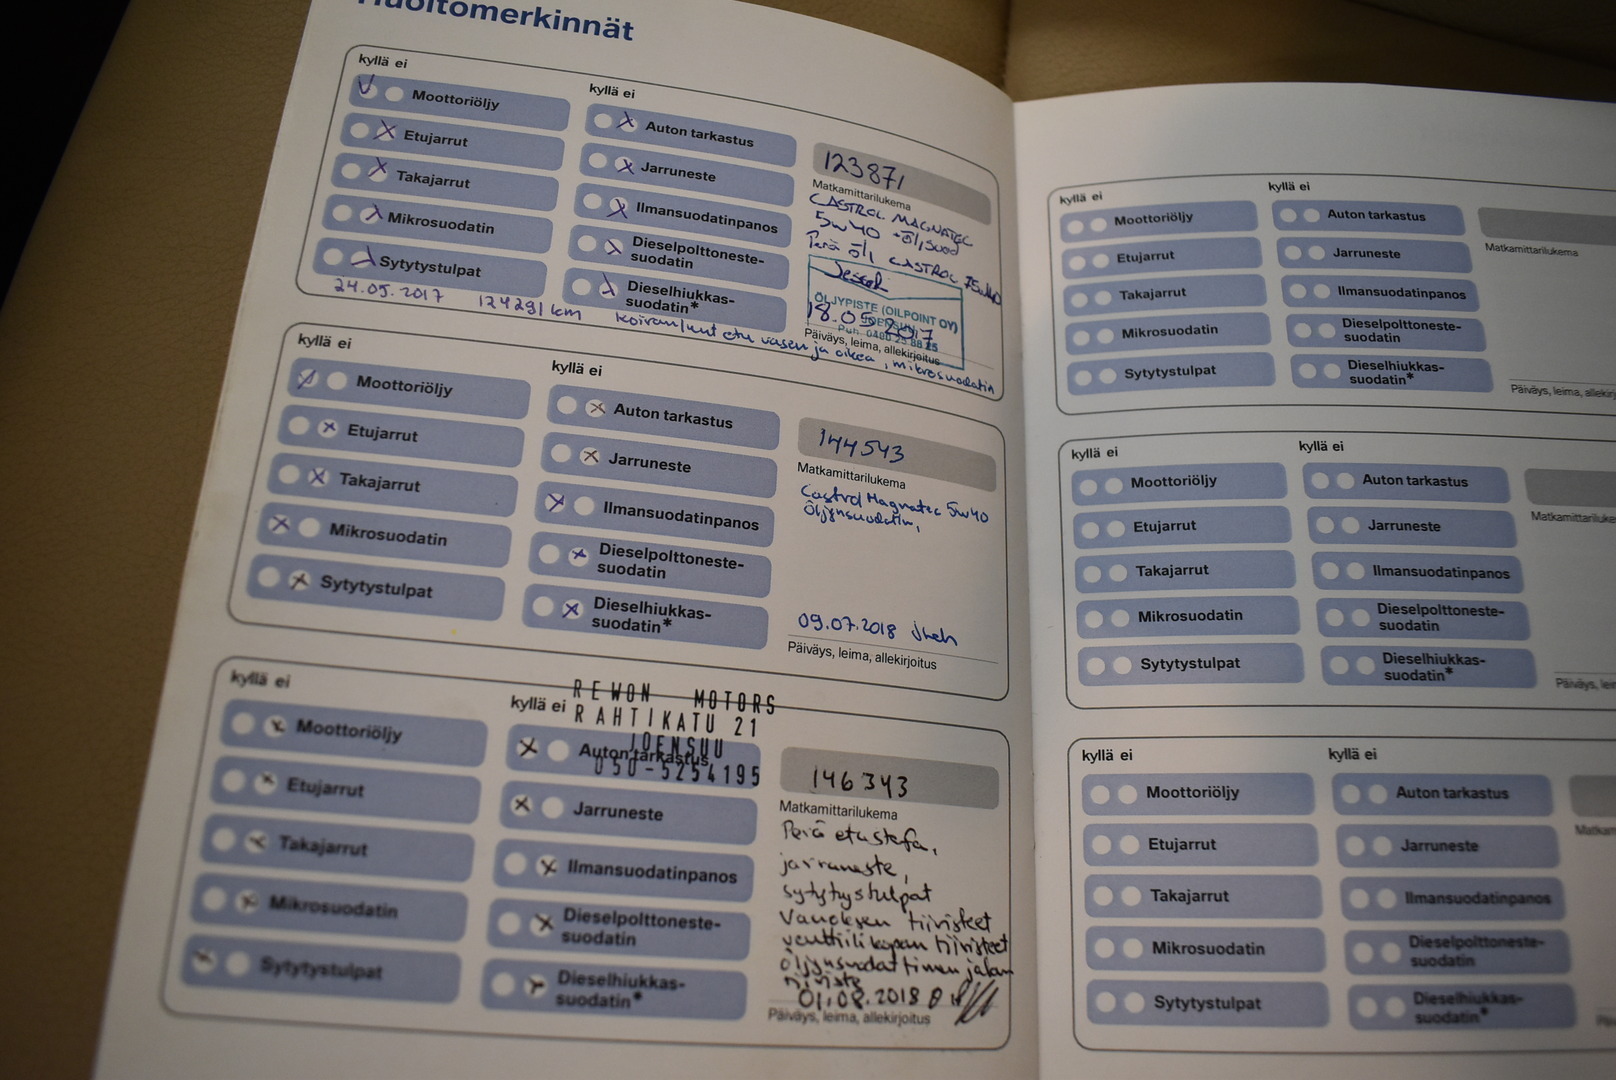 Huoltomerkinnät
kyllä ei
Moottoriöljy
Etujarrut
Takajarrut
Mikrosuodatin
Sytytystulpat
kyllä ei
Auton tarkastus
Jarruneste
Ilmansuodatinpanos
Dieselpolttoneste-
suodatin
Dieselhiukkas-
suodatin*
123871
Matkamittarilukema
CASTROL MAGNATEC
5W40 + öl,suod
Perä öl CASTROL 75W140
ÖLJYPISTE (OILPOINT OY)
JOENSUU
18.05.2017
Puh. 0400 25 88 25
Päiväys, leima, allekirjoitus
24.05.2017 124291 km koiranluut etu vasen ja oikea, mikrosuodatin
kyllä ei
Moottoriöljy
Etujarrut
Takajarrut
Mikrosuodatin
Sytytystulpat
kyllä ei
Auton tarkastus
Jarruneste
Ilmansuodatinpanos
Dieselpolttoneste-
suodatin
Dieselhiukkas-
suodatin*
144543
Matkamittarilukema
Castrol Magnatec 5W40
Öljynsuodatin,
09.07.2018
Päiväys, leima, allekirjoitus
kyllä ei
Moottoriöljy
Etujarrut
Takajarrut
Mikrosuodatin
Sytytystulpat
REWON MOTORS
RAHTIKATU 21
JOENSUU
050-5254195
kyllä ei
Auton tarkastus
Jarruneste
Ilmansuodatinpanos
Dieselpolttoneste-
suodatin
Dieselhiukkas-
suodatin*
146343
Matkamittarilukema
Perä etustefa,
jarruneste,
sytytystulpat
Vanoksen tiivisteet
venttiilikopan tiivisteet
öljynsuodattimen jalan
tiiviste
01.08.2018
Päiväys, leima, allekirjoitus
kyllä ei
Moottoriöljy
Etujarrut
Takajarrut
Mikrosuodatin
Sytytystulpat
kyllä ei
Auton tarkastus
Jarruneste
Ilmansuodatinpanos
Dieselpolttoneste-
suodatin
Dieselhiukkas-
suodatin*
Matkamittarilukema
Päiväys, leima, allekirj
kyllä ei
Moottoriöljy
Etujarrut
Takajarrut
Mikrosuodatin
Sytytystulpat
kyllä ei
Auton tarkastus
Jarruneste
Ilmansuodatinpanos
Dieselpolttoneste-
suodatin
Dieselhiukkas-
suodatin*
Matkamittariluke
Päiväys, lei
kyllä ei
Moottoriöljy
Etujarrut
Takajarrut
Mikrosuodatin
Sytytystulpat
kyllä ei
Auton tarkastus
Jarruneste
Ilmansuodatinpanos
Dieselpolttoneste-
suodatin
Dieselhiukkas-
suodatin*
Matkam